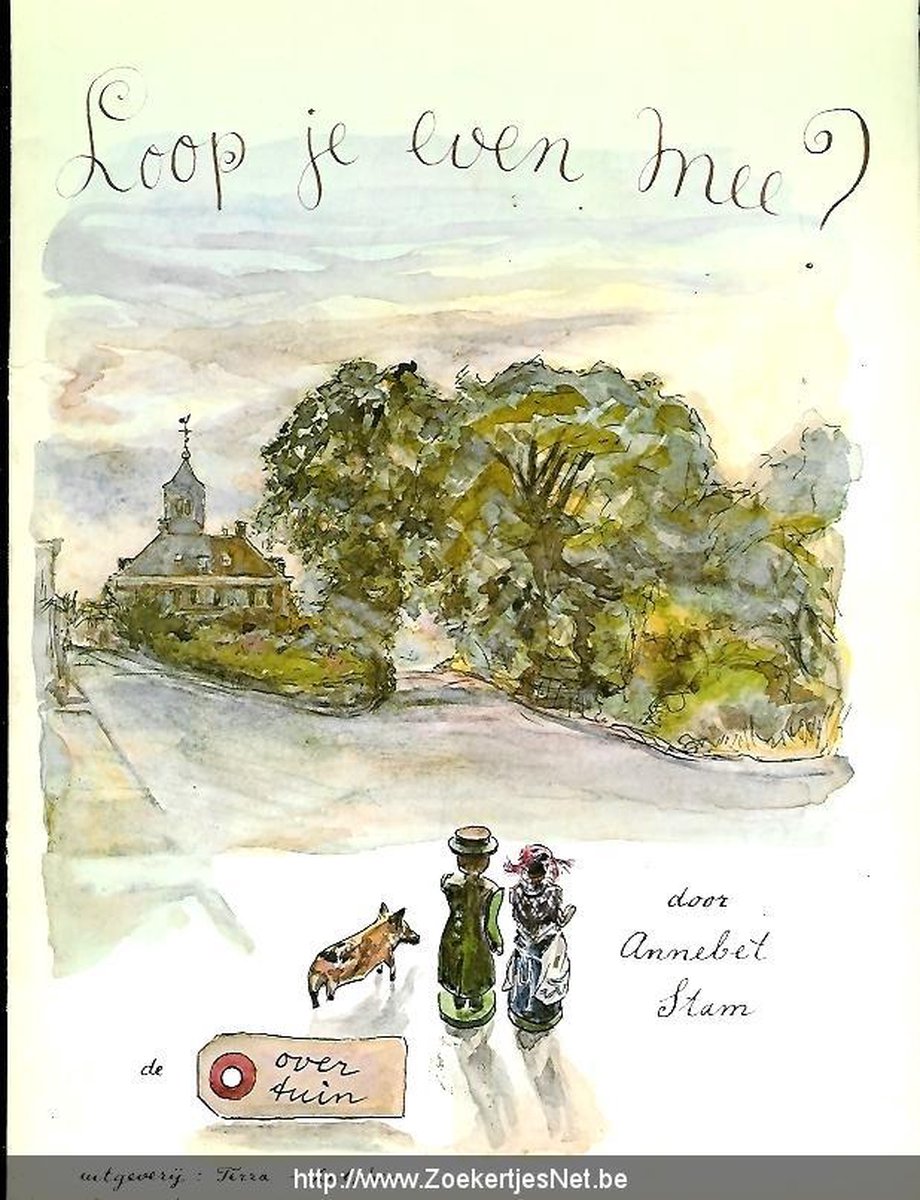 Loop je even mee?
door
Annebet
Stam
de
over
tuin
uitgeverij: Terra
http://www.ZoekertjesNet.be